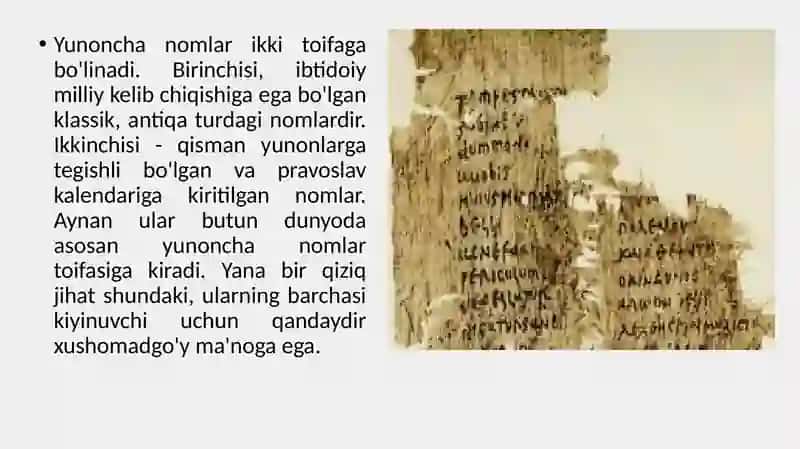 • Yunoncha nomlar ikki toifaga
bo'linadi. Birinchisi, ibtidoiy
milliy kelib chiqishiga ega bo'lgan
klassik, antiqa turdagi nomlardir.
Ikkinchisi - qisman yunonlarga
tegishli bo'lgan va pravoslav
kalendariga kiritilgan nomlar.
Aynan ular butun dunyoda
asosan yunoncha nomlar
toifasiga kiradi. Yana bir qiziq
jihat shundaki, ularning barchasi
kiyinuvchi uchun qandaydir
xushomadgo'y ma'noga ega.